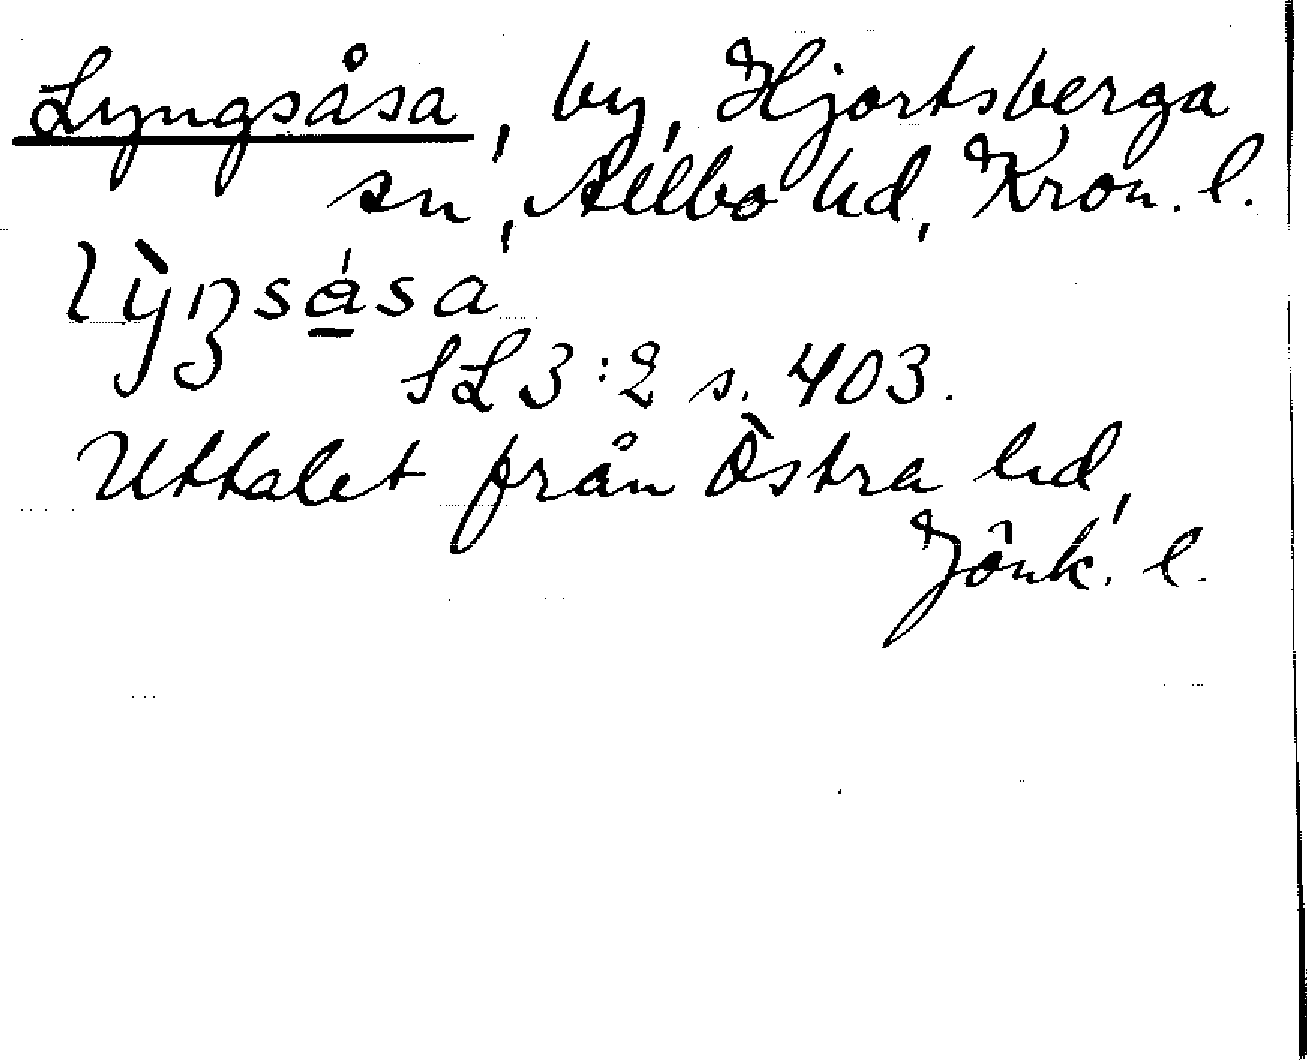 Lyngsåsa, by, Hjortsberga
sn, Allbo hd, Kron. l.
lỳŋsása
SL 3:2 s. 403.
Uttalet från Östra hd,
Jönk. l.